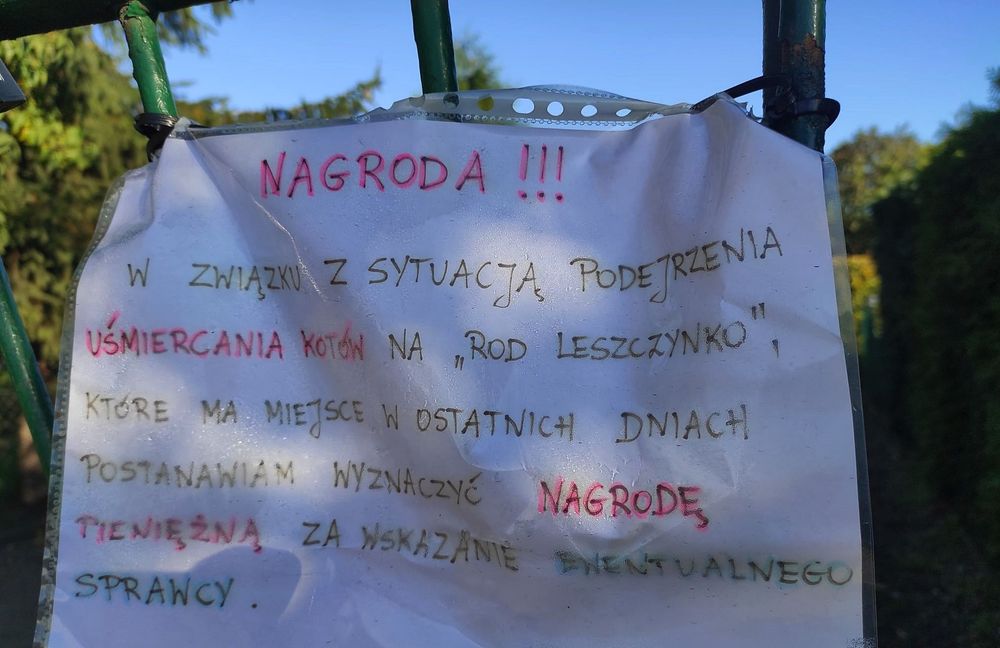 NAGRODA !!!
W ZWIĄZKU Z SYTUACJĄ PODEJRZENIA
UŚMIERCANIA KOTÓW NA „ROD LESZCZYNKO”,
KTÓRE MA MIEJSCE W OSTATNICH DNIACH
POSTANAWIAM WYZNACZYĆ NAGRODĘ
PIENIĘŻNĄ ZA WSKAZANIE EWENTUALNEGO
SPRAWCY.